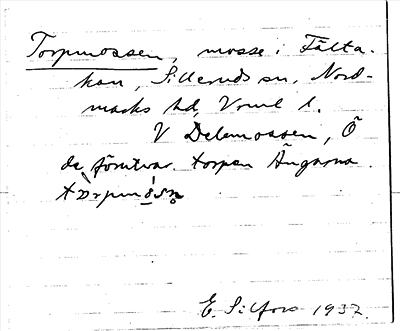 Torpmossen, mosse i Fälta-
kan, Silleruds sn, Nord-
marks hd, Vrml l.
V Delemossen, Ö
de förutvar. torpen Ängarna.
E. Silfors 1937.